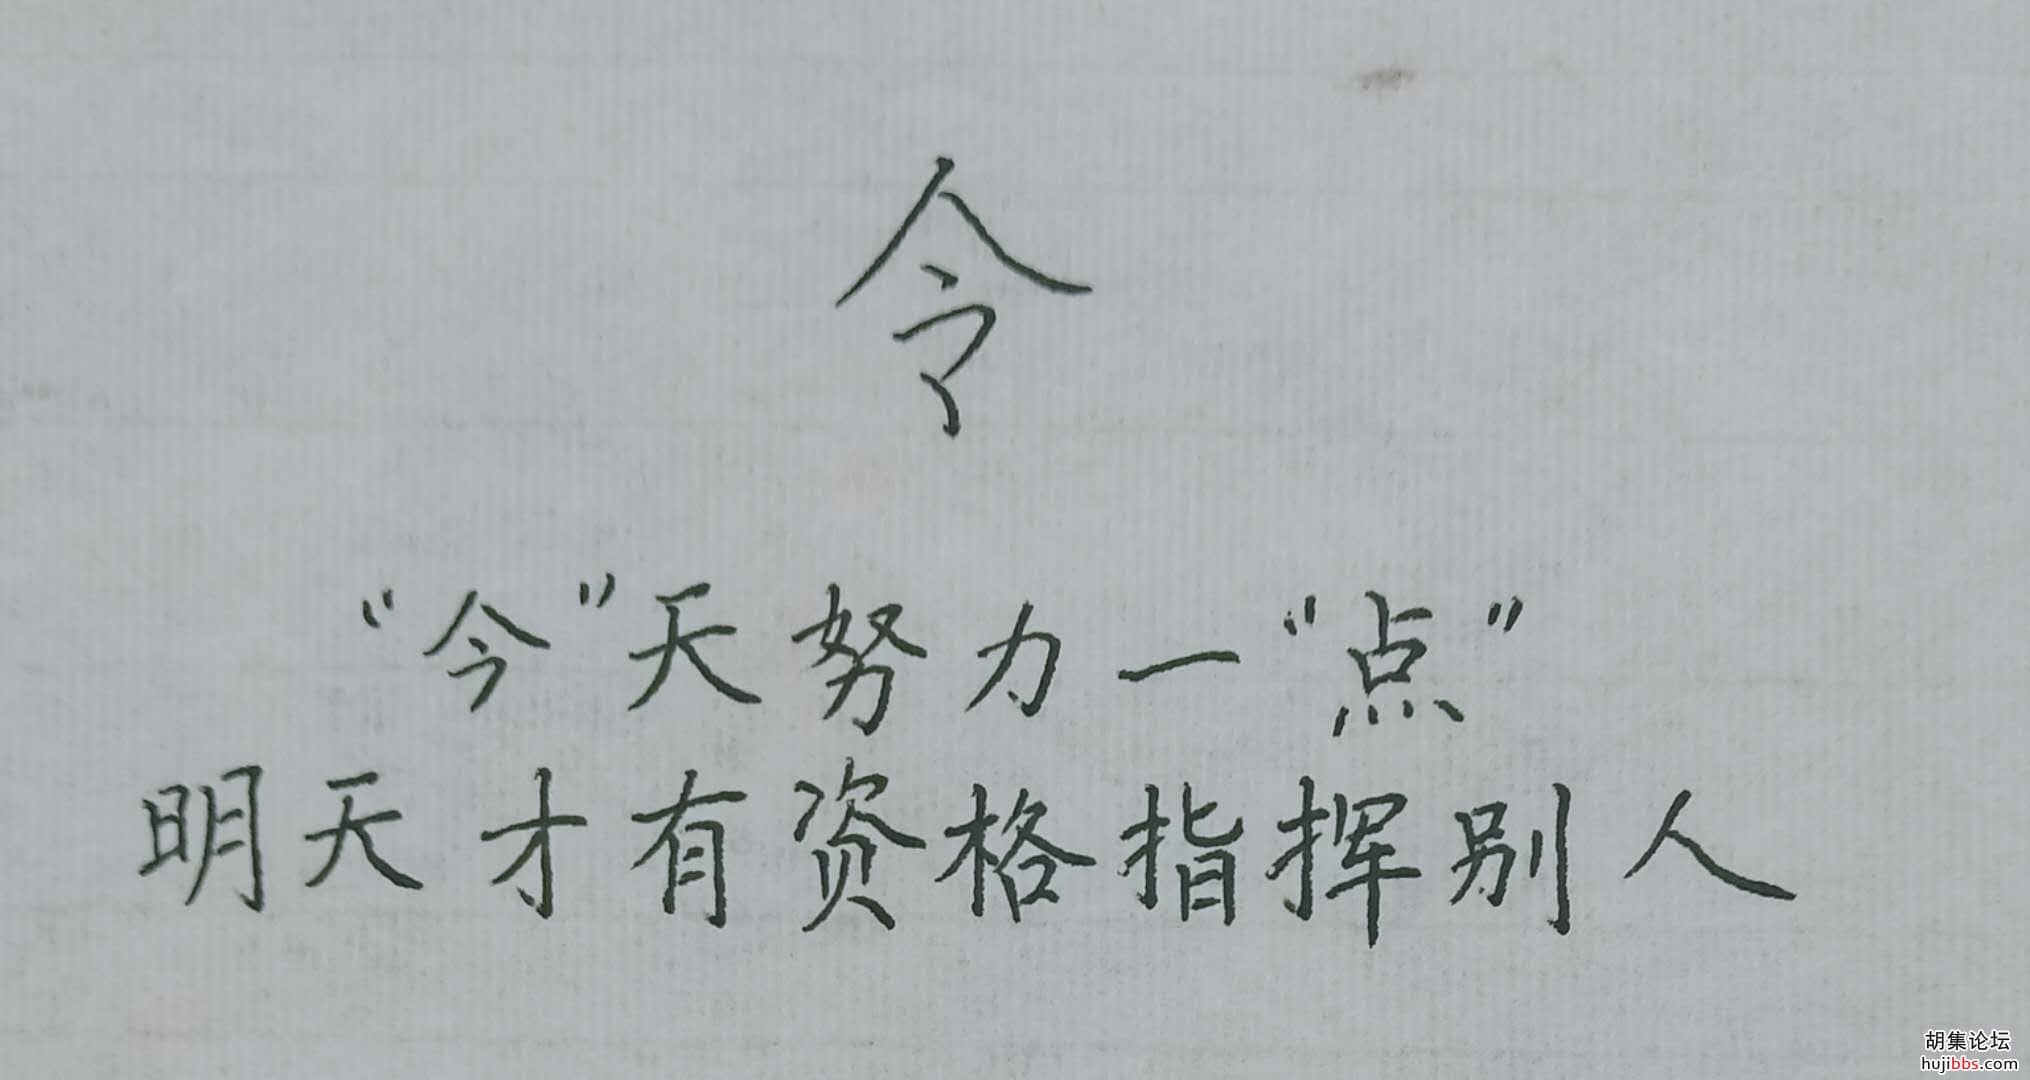 令
“今”天努力一“点”
明天才有资格指挥别人
胡集论坛
hujibbs.com